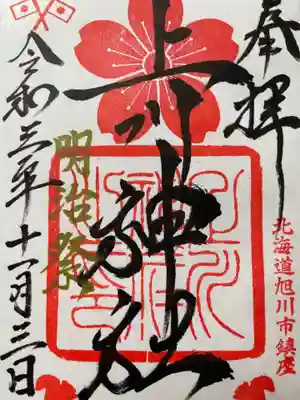 奉拝
北海道旭川市鎮座
上川神社
明治祭
令和三年十一月三日